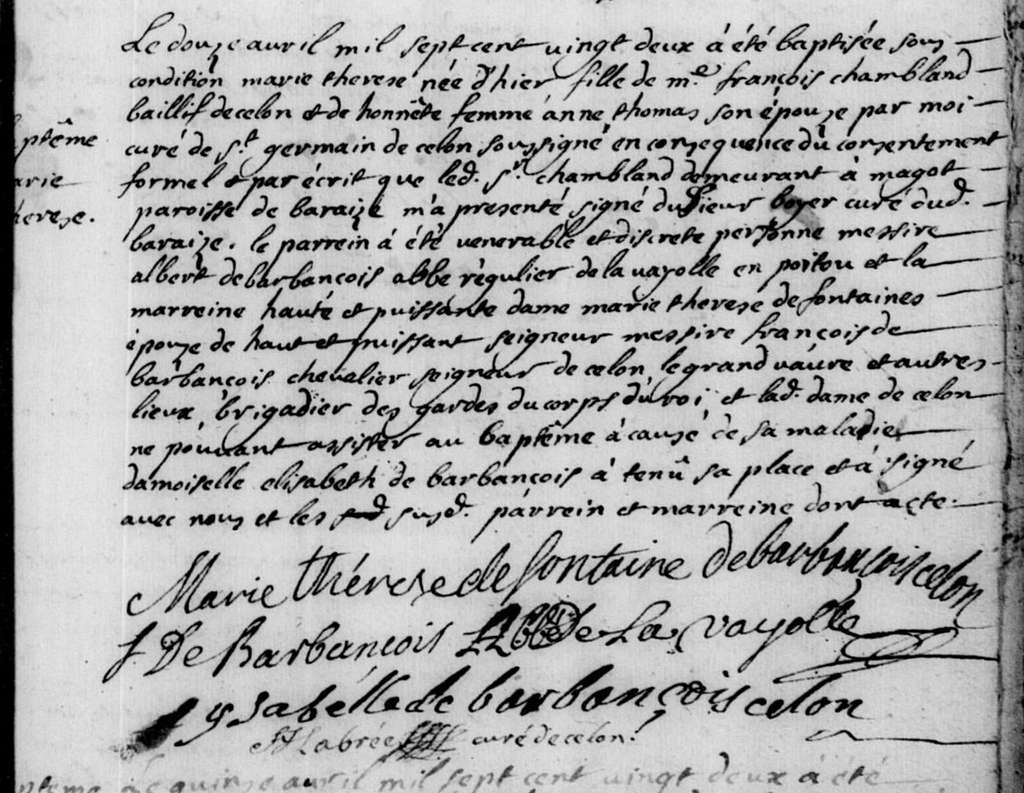 Le douze avril mil sept cent vingt deux á été baptisée sous
condition marie therese née d'hier fille de me. françois chambland
baillif de celon et de honnête femme anne thomas son épouze par moi
ptême
curé de st. germain de celon soussigné en consequence du consentement
arie
formel & par écrit que led. sr. chambland demeurant à magot
herese.
paroisse de baraize m'a presenté signé du sieur boyer curé dud.
baraize. le parrein á été venerable et discrete personne messire
albert de barbançois abbe régulier de la vayolle en poitou et la
marreine haute et puissante dame marie therese de fontaines
épouze de haut et puissant seigneur messire françois de
barbançois chevalier seigneur de celon, le grand vaure et autres
lieux, brigadier des gardes du corps du roi et lad. dame de celon
ne pouvant assister au baptême à cause de sa maladie
damoiselle elisabeth de barbançois à tenu sa place et á signé
avec nous et les susd. parrein et marreine dont acte.
Marie thérese de fontaine de barbançois celon
f. De Barbançois Abbé De La vayolle
ysabélle de barbançois celon
Labrée curé de celon.
pteme Le quinze avril mil sept cent vingt deux á été